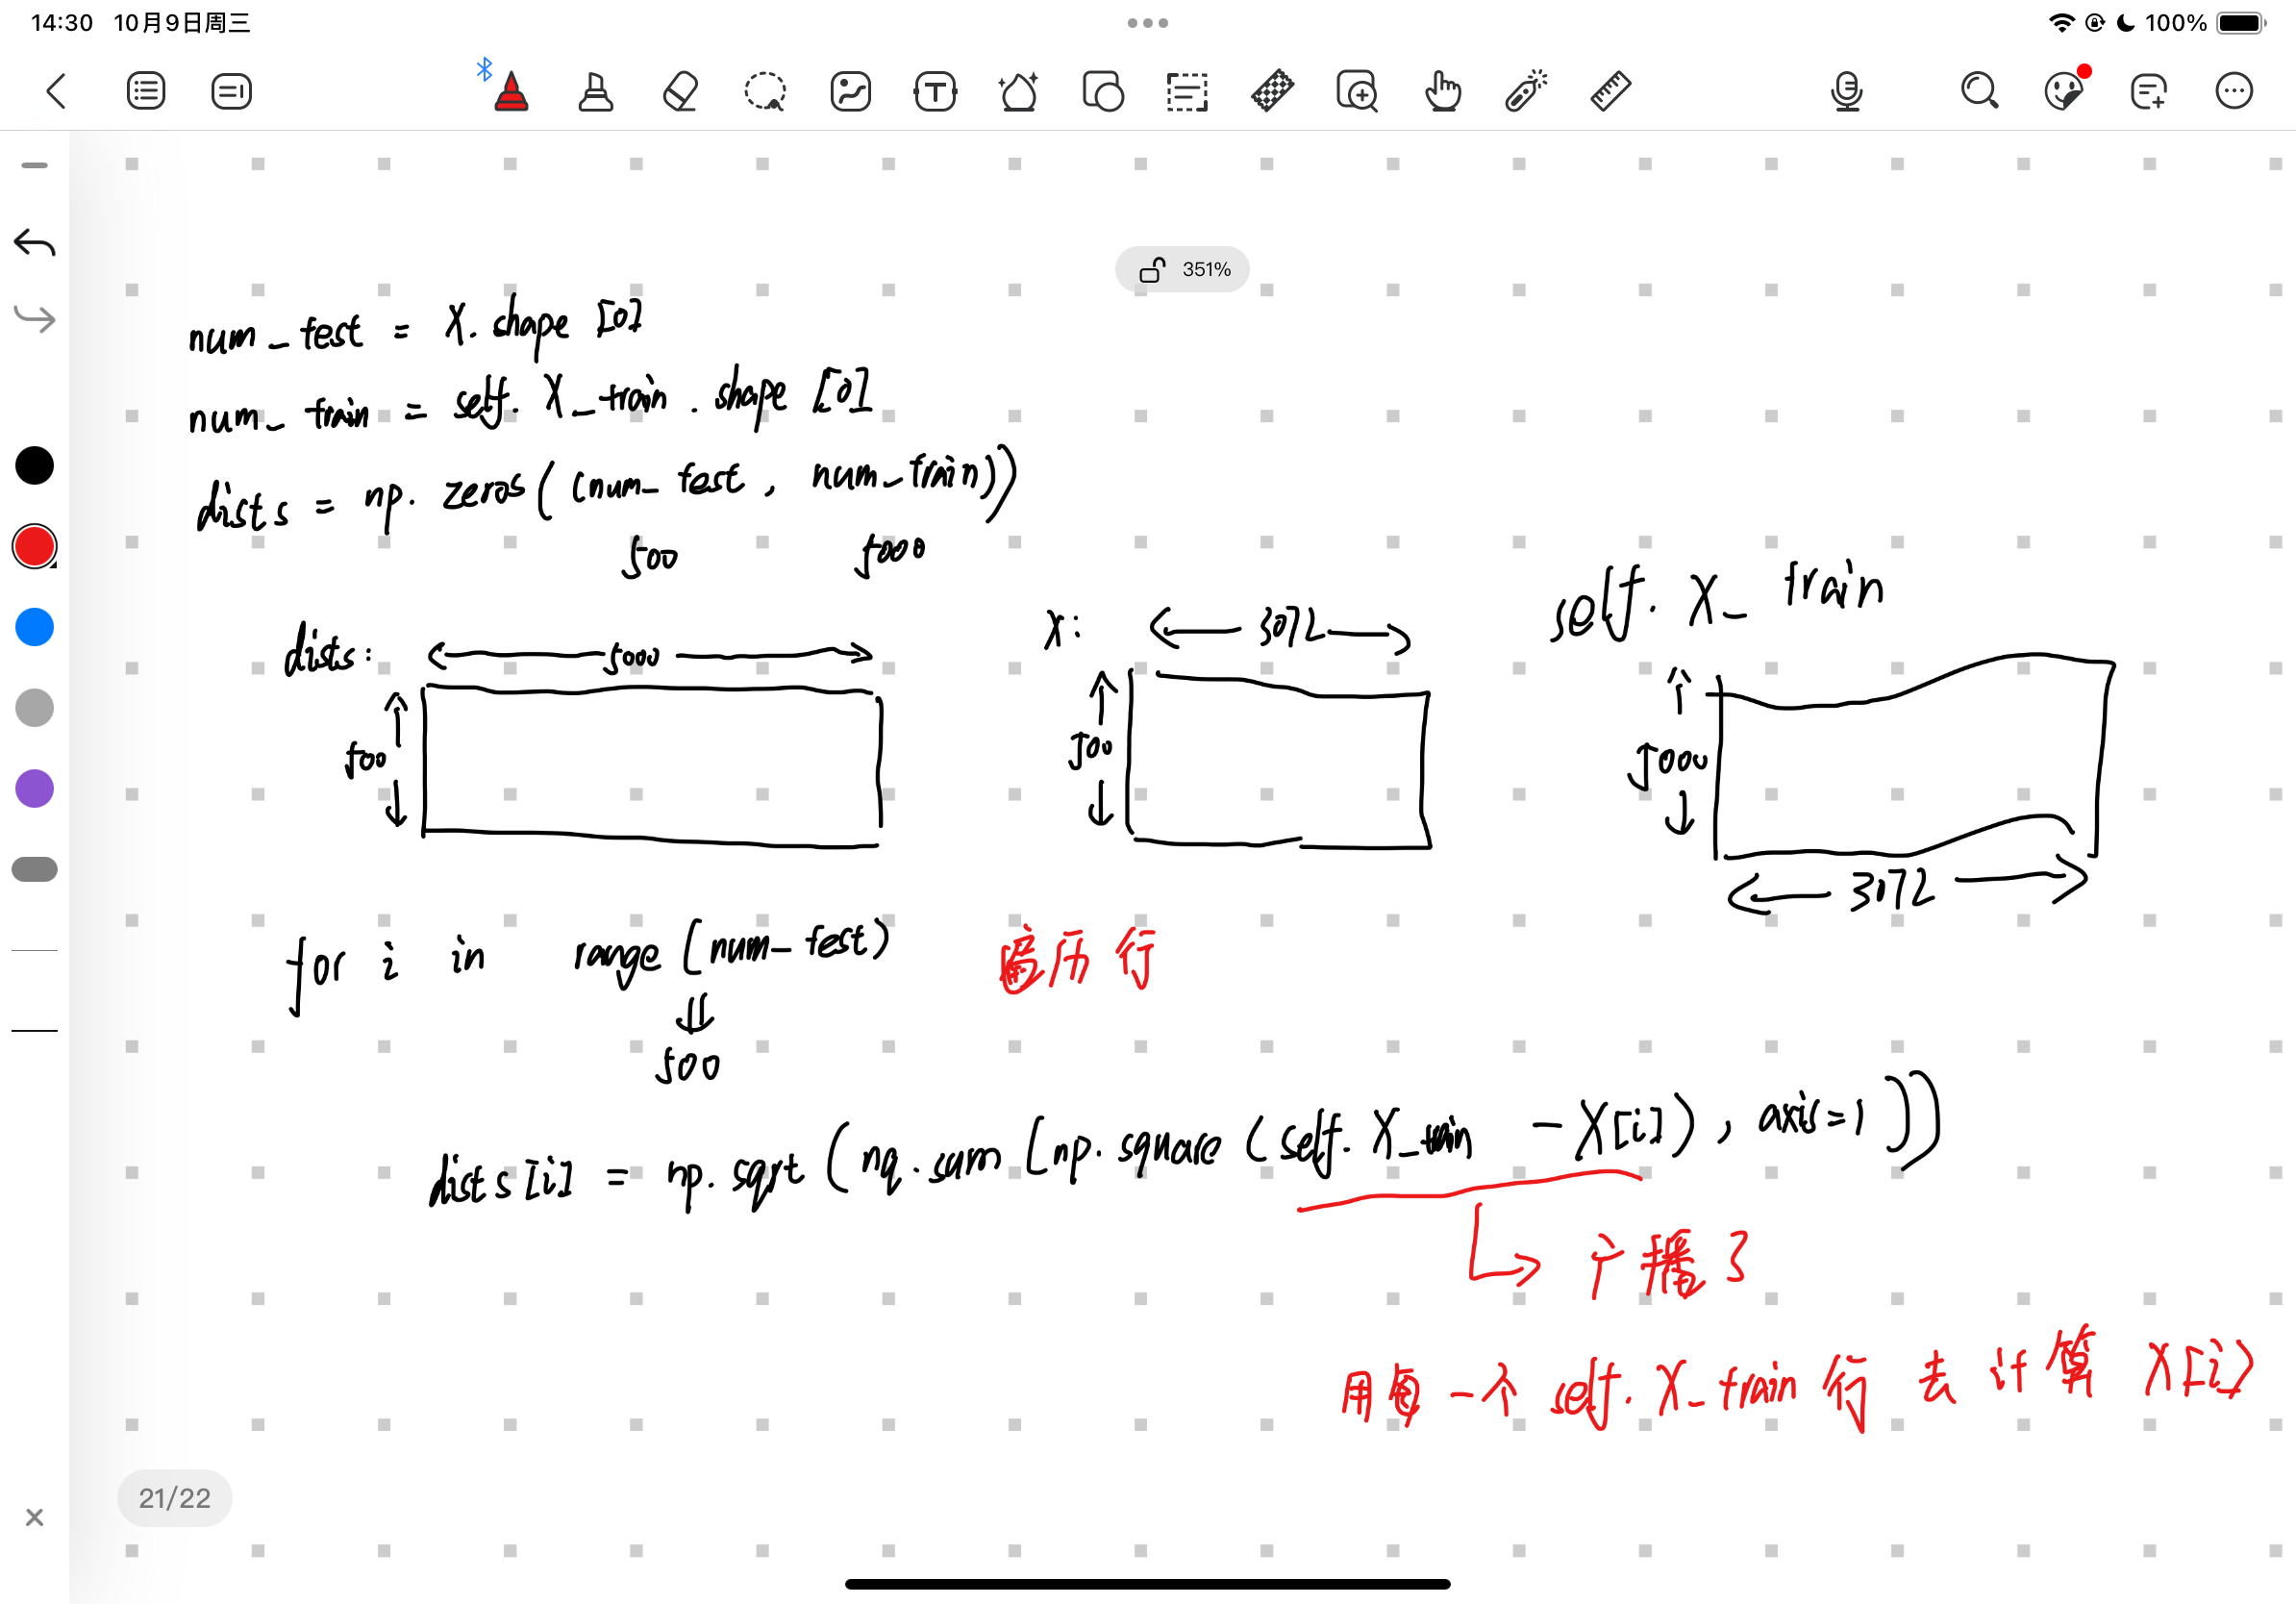 14:30 10月9日周三
100%
351%
num_test = X.shape [0]
num_train = self.X_train.shape [0]
dists = np.zeros((num_test, num_train))
500 5000
self.X_train
dists: 5000
X: 3072
500
500
5000
3072
for i in range(num_test) 遍历行
500
dists[i] = np.sqrt(nq.sum(np.square(self.X_train - X[i]), axis=1)))
广播了
用每一个 self.X_train 行去计算 X[i]
21/22